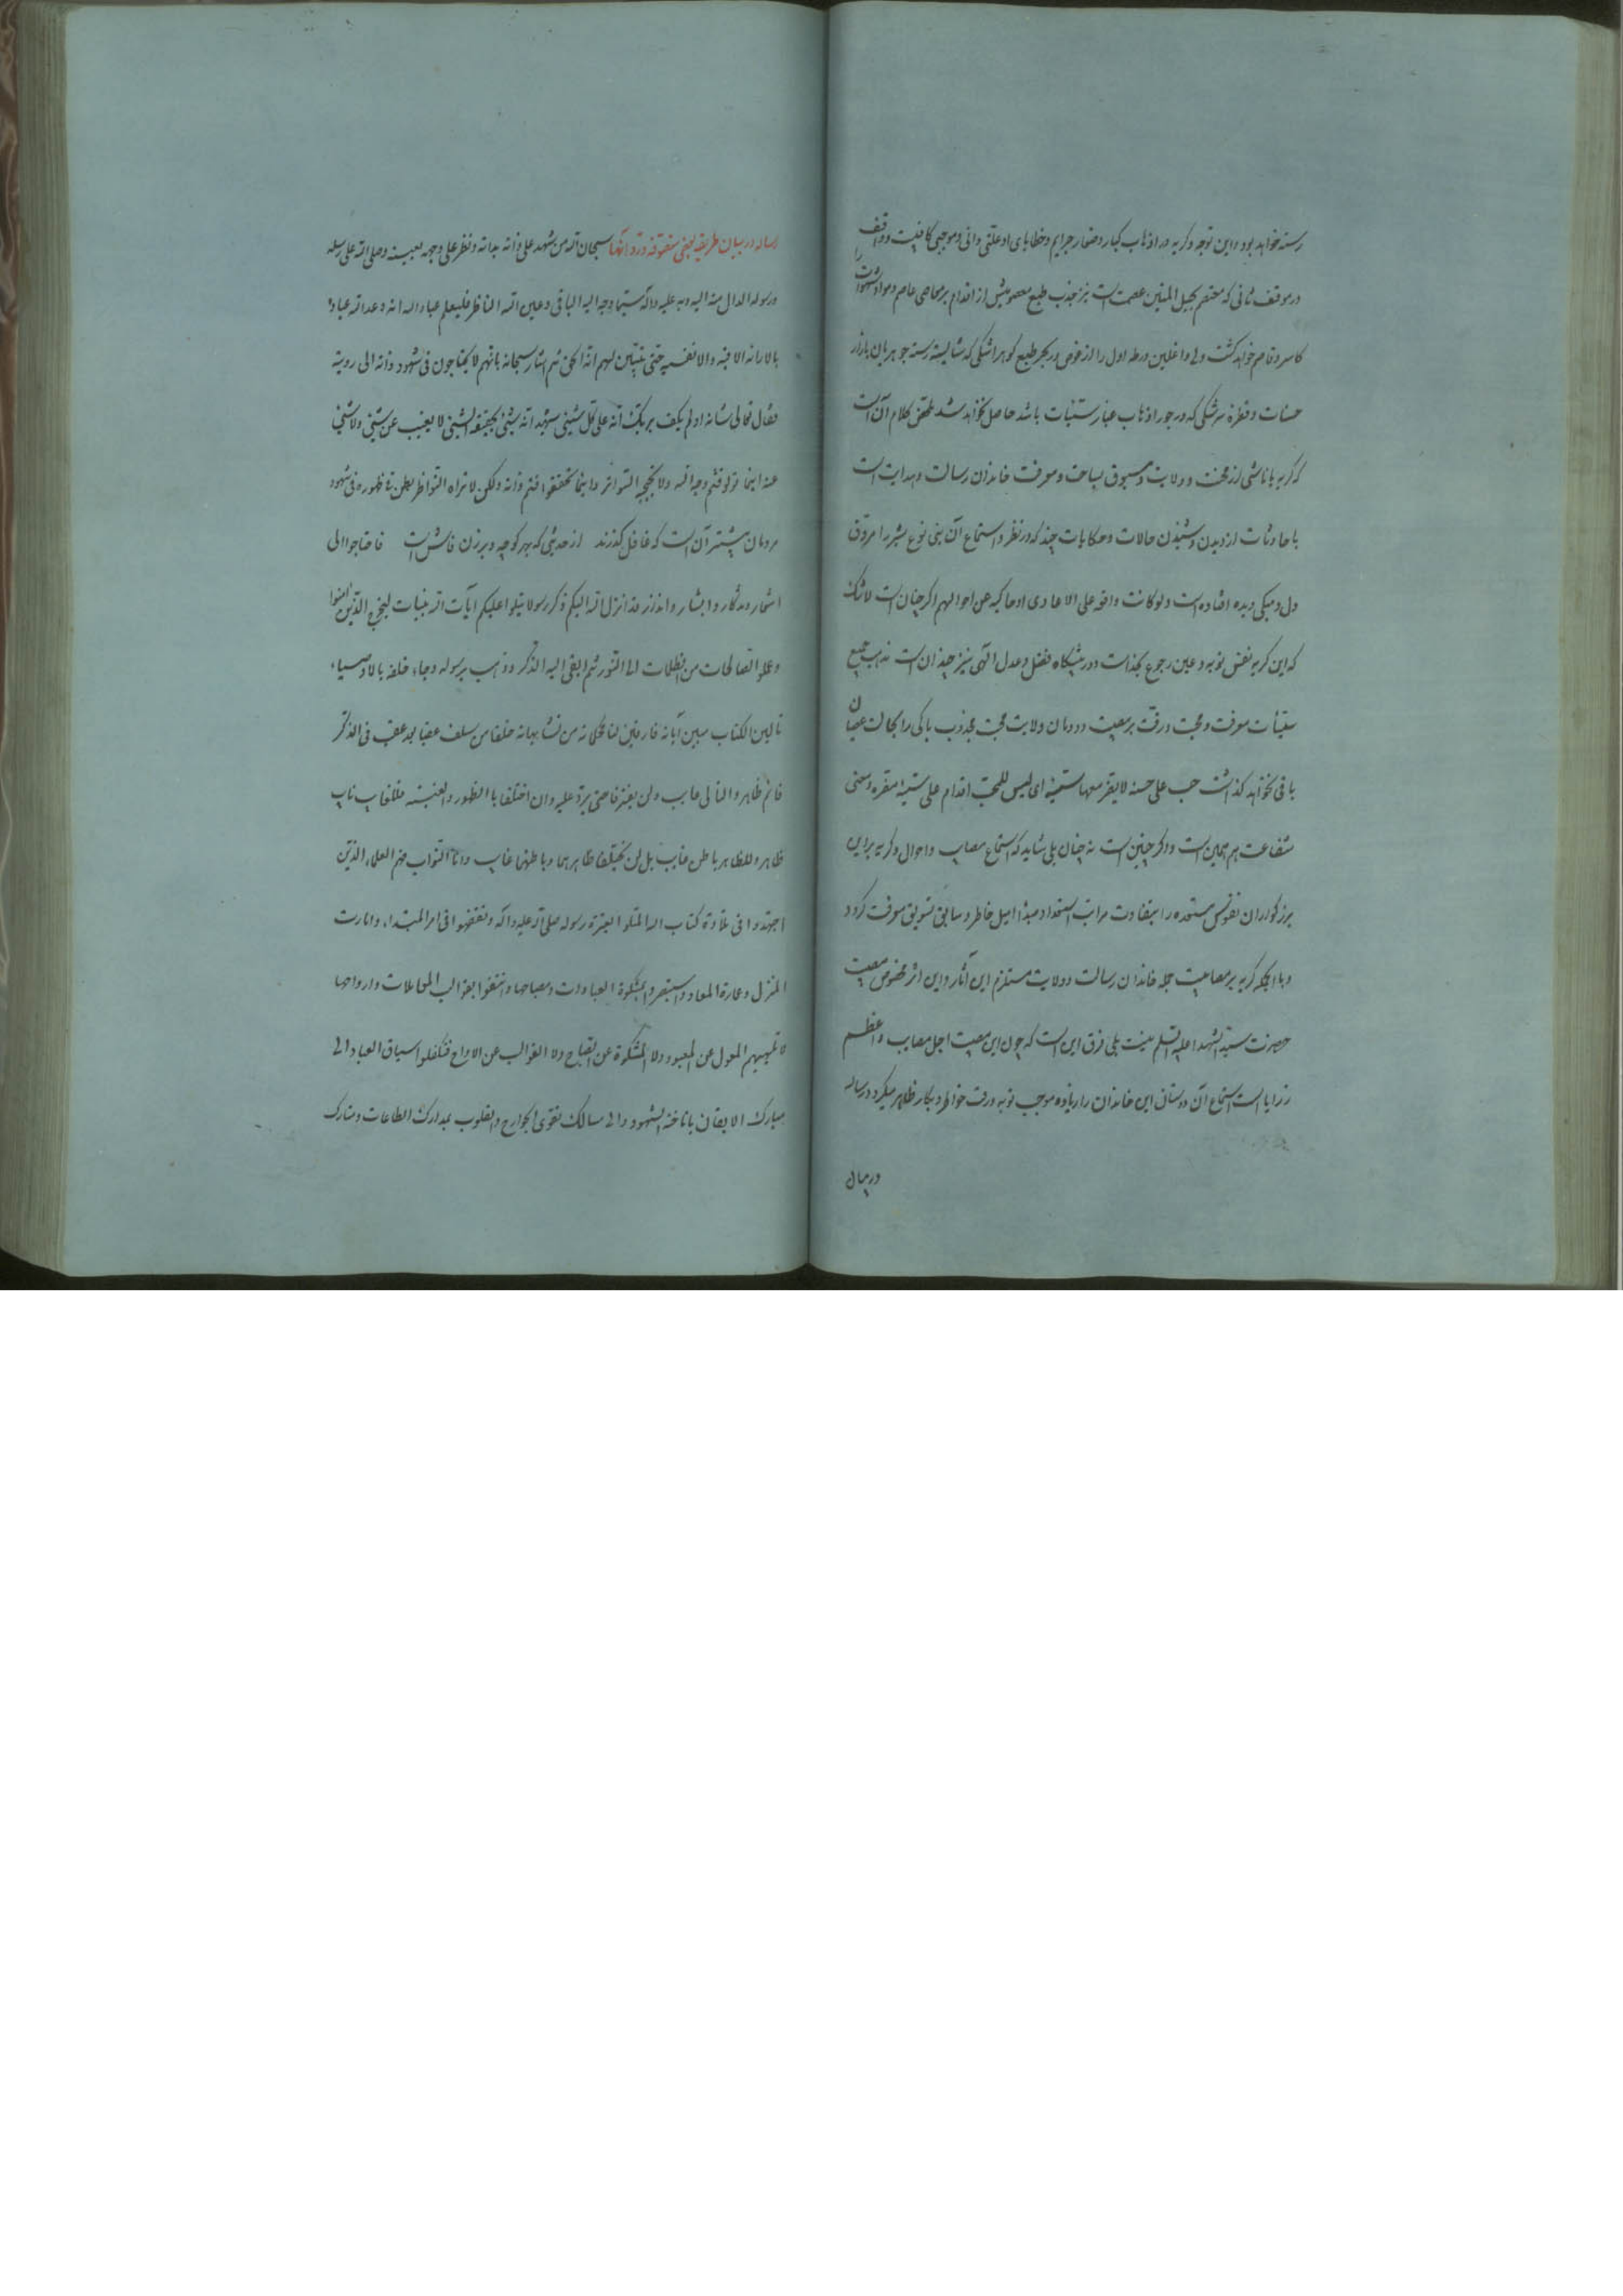 رسته خواهد بود و این توجه و کریه در اذهاب کبار و صغار جرایم و خطایای او علتی وافی و موجبی کافیست و واقف را
در موقف ثانی که معتصم بحبل المتین عصمت است نیز جذب طبع معصومیش از اقدام بر معاصی عاصم و مواد شهوات
کاسر و قاصم خواهد کشت ولی واغلین ورطه اول را از غوص در بحر طبع کوهر اشکی که شایسته رسته جوهریان بازار
حسنات و قطره سرشکی که در جور اذهاب غبار سیئات باشد حاصل نخواهد شد ملخص کلام آن است
که کریه یا ناشی از محبت و ولایت و مسبوق بساحت و معرفت خاندان رسالت و هدایت است
یا حادثات از دیدن و شنیدن حالات و حکایات چند که در نظر و استماع آن بنی نوع بشر را مروق
دل و میکی دیده افتاده است و لو کانت واقعه علی الاعادی او حاکیه عن احوالهم اکر چنان است لاشک
که این کریه نفس توبه و عین رجوع بخداست و در پیشکاه فضل و عدل الهی نیز چندان است که جمیع
سیئات معرفت و محبت و رقت بر مصیبت دودمان ولایت محبت مجذوب باکی را بحالت عصیان
باقی نخواهد کذاشت حب علی حسنة لا یضر معها سیئة ای لیس للمحب اقدام علی سیئة مضره و معنی
شفاعت هم همین است و اکر چنین است نه چنان بلی شاید که استماع مصایب و احوال و کریه بر این
بزرکواران نفوس مستعده را بتفاوت مراتب استعداد مبدا میل خاطر و سابق تشویق معرفت کردد
و بالجمله کریه بر مصایب جمله خاندان رسالت و ولایت مستلزم این آثار و این اثر مخصوص مصیبت
حضرت سید الشهدا علیه السلم نیست بلی فرق این است که چون این مصیبت اجل مصایب و اعظم
رزایا است استماع آن دوستان این خاندان را زیاده موجب توبه و رقت خواطر و بکا ظاهر میکردد رساله
در بیان
رساله در بیان طریقه بعضی متصوفه و رد آنها سبحان الله من شهد علی ذاته بذاته و نظر علی وجهه بعینه و صلی الله علی رسله
و رسوله الدال منه الیه و به علیه و اله سیما وجه الیه الباقی و عین الله الناظر فلیعلم عباد الله انه وعد الله عباده
بالاراءة الافقیه و الانفسیه حتی یتبین لهم انه الحق ثم اشار سبحانه بانهم لا یحتاجون فی شهود ذاته الی رویة
فقال تعالی شانه اولم یکف بربک انه علی کل شیئ شهید انه شیئ بحقیقة الشیئ لا یغیب عن شیئ ولا شیئ
عنه اینما تولو فثم وجه الله ولا یحجبه السواتر و اینما تحققو فثم ذاته ولکن لا تراه النواظر بطن فی ظهوره فی شهود
مردمان بیشتر آن است که غافل کذرند از حدیثی که بهر کوچه و برزن فاش است فاحتاجوا الی
اشعار و تذکار و ابشار و انذار قد انزل الله الیکم ذکرا رسولا یتلوا علیکم ایآت الله بینات لیخرج الذین امنوا
و عملوا الصالحات من الظلمات الی النور ثم ابقی الیه الذکر و ذهب برسوله و جاء خلفه بالاوصیاء
تالین الکتاب مبین آیاته فارقین لنا محکماته من متشابهاته خلفا من سلف عقبا بعد عقب فی الذکر
قائم ظاهر و التالی غایب و لن یفترقا حتی یردا علیه و ان اختلفا باالظهور و الغیبه فللغایب نایب
ظاهر و للظاهر باطن غایب بل لن یختلفا ظاهرهما و باطنهما غایب و اما النواب فهم العلماء الذین
اجتهدوا فی تلاوة کتاب الله المتلو العترة رسوله صلی الله علیه و اله و تفقهوا فی امر المبتداء و امارت
المنزل و عمارة المعاد و استبصروا بمشکوة العبادات و مصباحها و انتفعوا بقوالب المعاملات و ارواحها
لا تلهیهم المعول عن المعبود ولا المشکوة عن المصباح ولا القوالب عن الارواح فتکفلوا سیاق العباد الی
مبارک الایقان باناخة الشهود و الی مسالک تقوی الجوارح و القلوب بمدارک الطاعات و متارک